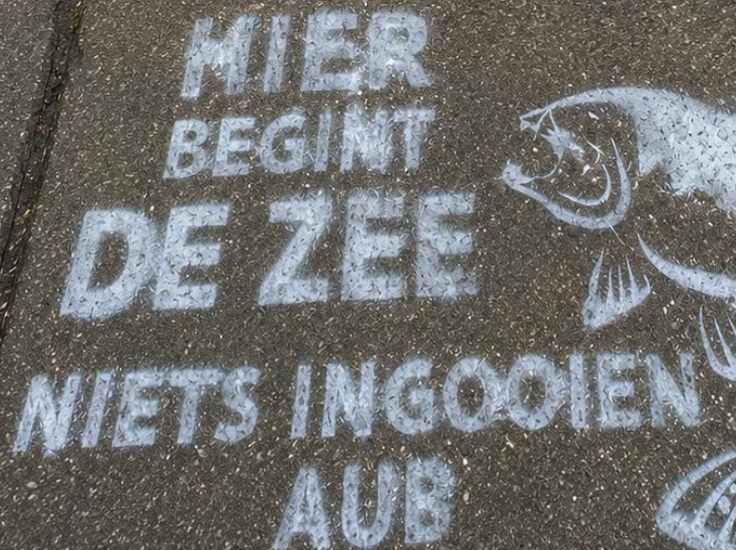 HIER
BEGINT
DE ZEE
NIETS INGOOIEN
AUB